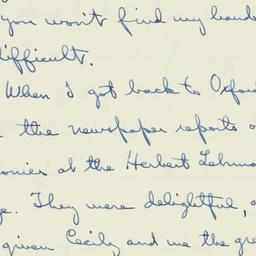 you won't find my hand
difficult.
When I got back to Oxford
the newspaper reports o
onies at the Herbert Lehma
e. They were delightful, a
given Cecily and me the gre